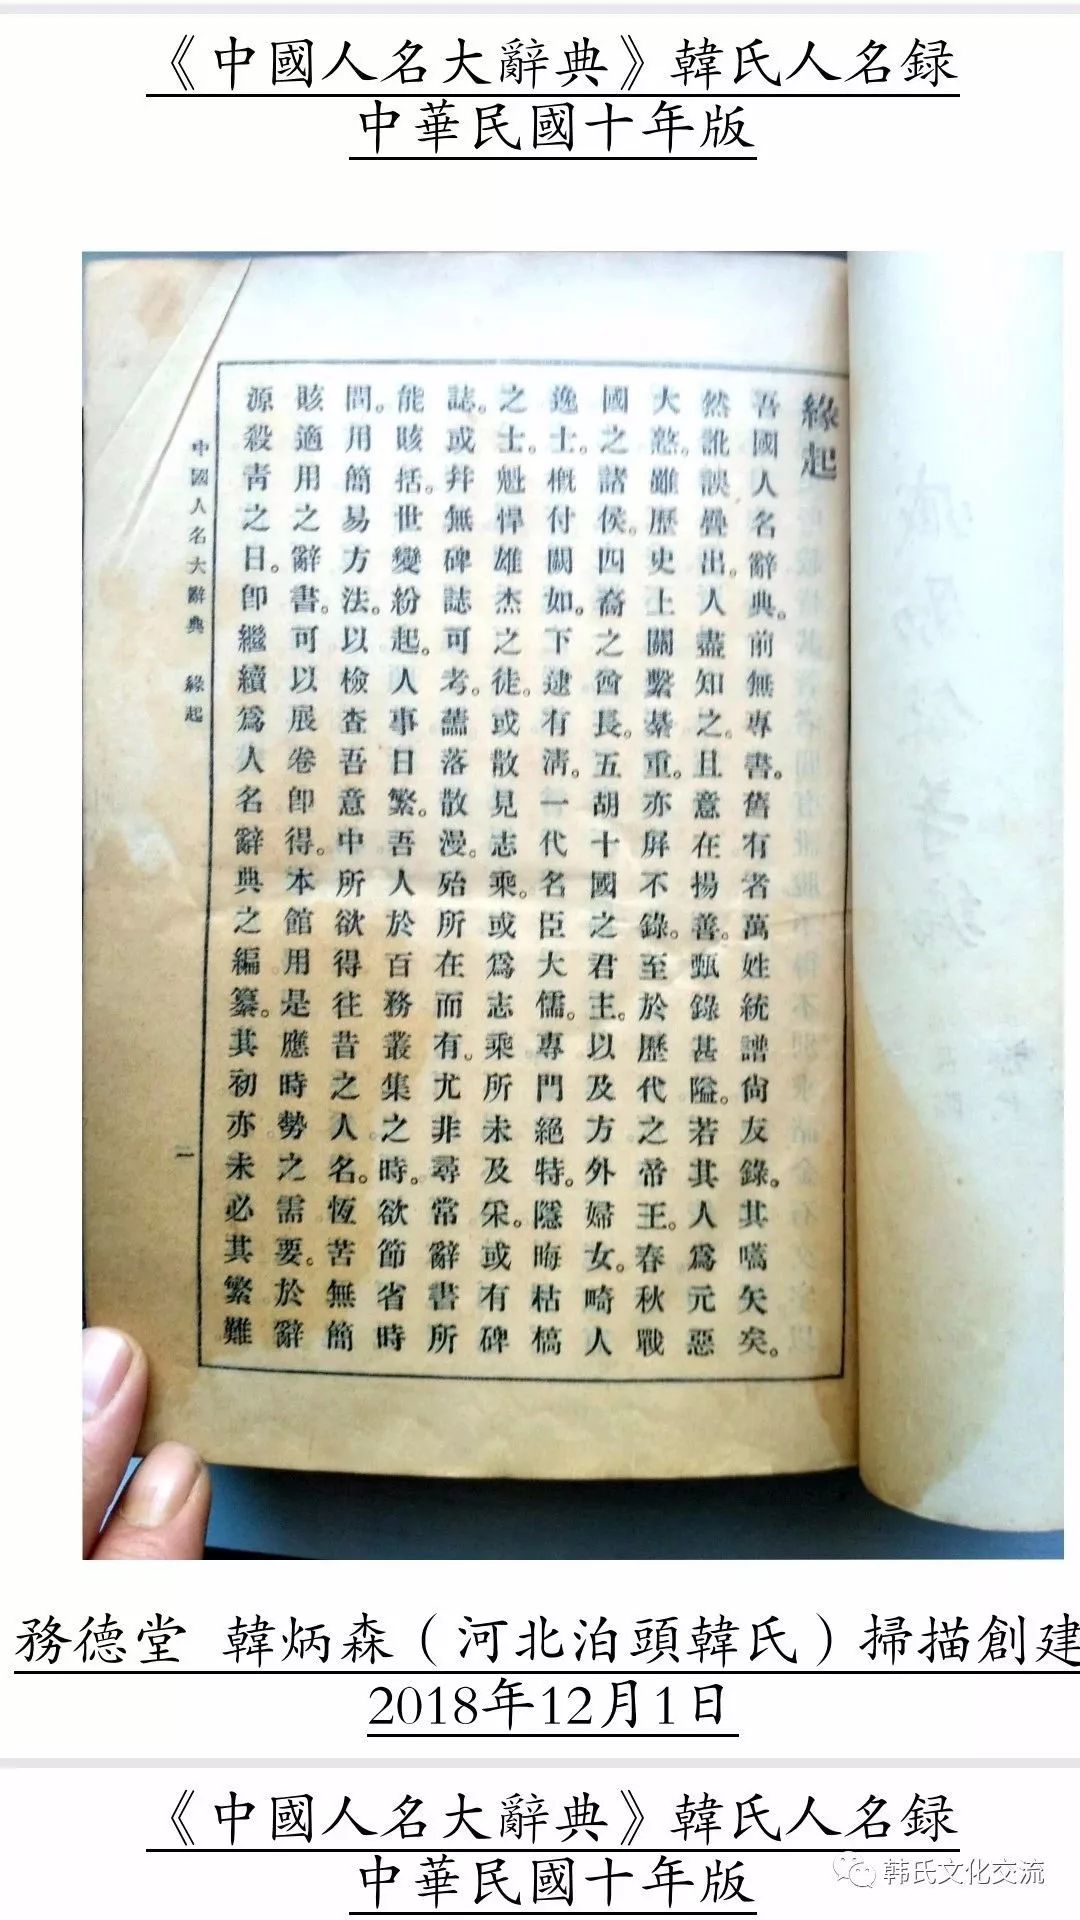 《中國人名大辭典》韓氏人名録
中華民國十年版
緣起
吾國人名辭典。前無專書。舊有者萬姓統譜尙友錄。其嚆矢矣。
然訛誤疊出。人盡知之。且意在揚善。甄錄甚隘。若其人爲元惡
大憝。雖歷史上關繫綦重。亦屏不錄。至於歷代之帝王。春秋戰
國之諸侯。四裔之酋長。五胡十國之君主。以及方外婦女。畸人
逸士。概付闕如。下逮有淸。一代名臣大儒。專門絕特。隱晦枯槁
之士。魁悍雄杰之徒。或散見志乘。或爲志乘所未及采。或有碑
誌。或幷無碑誌可考。蕭落散漫。殆所在而有。尤非尋常辭書所
能賅括。世變紛起。人事日繁。吾人於百務叢集之時。欲節省時
間。用簡易方法。以檢查吾意中所欲得往昔之人名。恆苦無簡
賅適用之辭書。可以展卷卽得。本館用是應時勢之需要。於辭
源殺靑之日。卽繼續爲人名辭典之編纂。其初亦未必其繁難
中國人名大辭典 緣起
一
務德堂 韓炳森（河北泊頭韓氏）掃描創建
2018年12月1日
《中國人名大辭典》韓氏人名録
中華民國十年版
韩氏文化交流